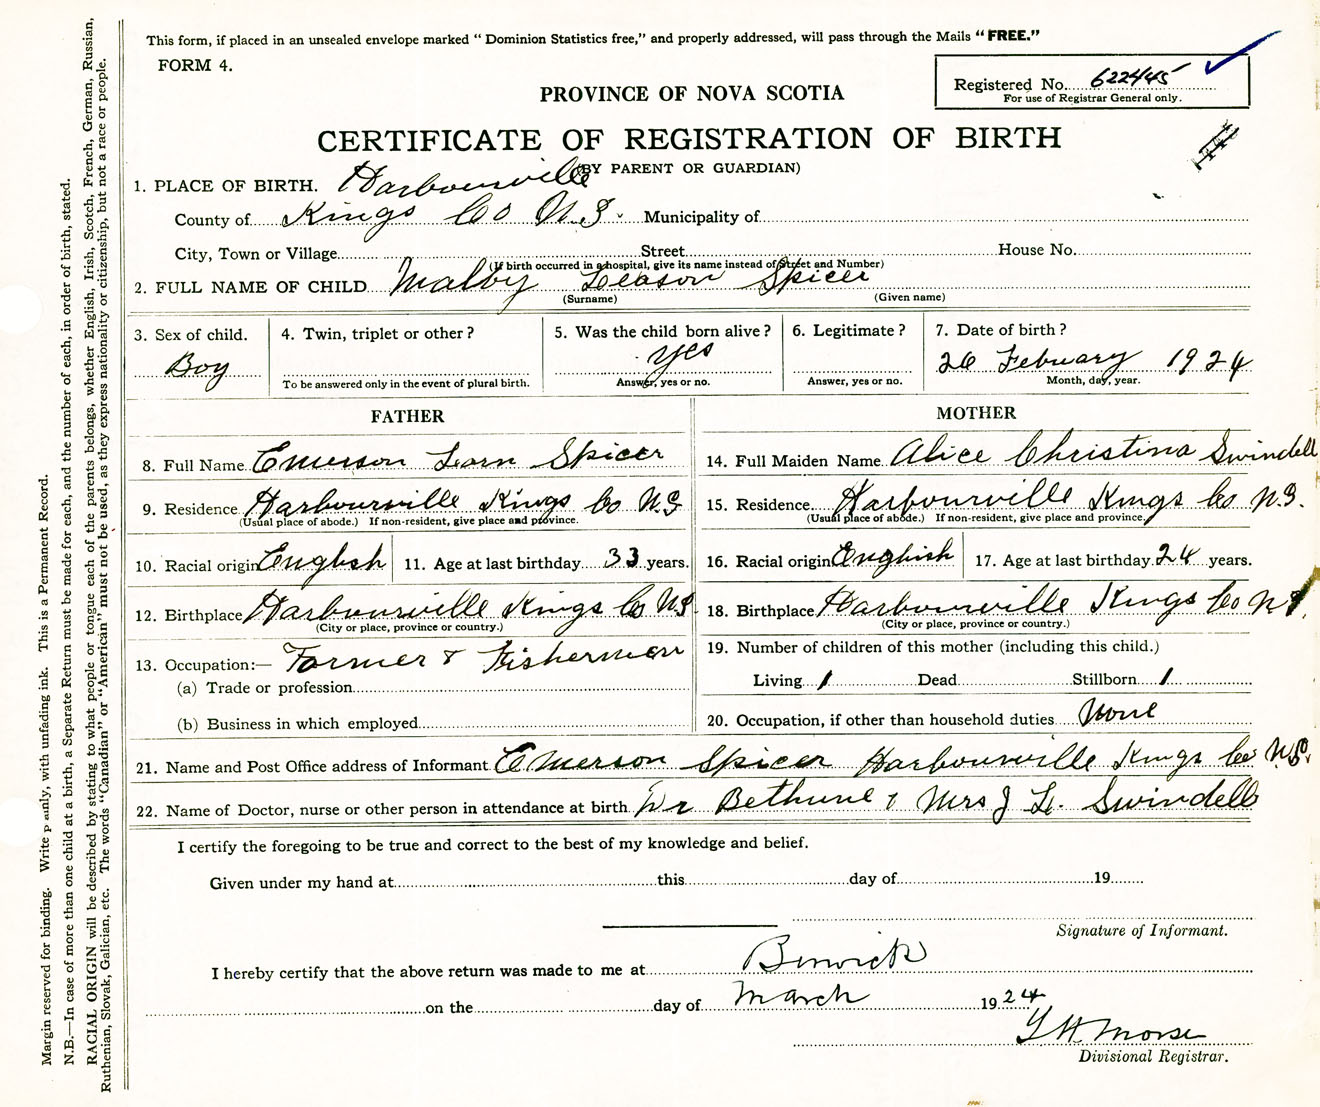 This form, if placed in an unsealed envelope marked “ Dominion Statistics free,” and properly addressed, will pass through the Mails “FREE.”
FORM 4.
Registered No. 622445
For use of Registrar General only.
PROVINCE OF NOVA SCOTIA
CERTIFICATE OF REGISTRATION OF BIRTH
(BY PARENT OR GUARDIAN)
1. PLACE OF BIRTH. Harbourville
County of Kings Co N.S. Municipality of
City, Town or Village Street House No.
(If birth occurred in a hospital, give its name instead of Street and Number)
2. FULL NAME OF CHILD Malby Leason Spicer
(Surname) (Given name)
3. Sex of child. 4. Twin, triplet or other ? 5. Was the child born alive ? 6. Legitimate ? 7. Date of birth ?
Boy yes 26 February 1924
To be answered only in the event of plural birth. Answer, yes or no. Answer, yes or no. Month, day, year.
FATHER MOTHER
8. Full Name Emerson Lorn Spicer 14. Full Maiden Name Alice Christina Swindell
9. Residence Harbourville Kings Co N.S 15. Residence Harbourville Kings Co N.S.
(Usual place of abode.) If non-resident, give place and province. (Usual place of abode.) If non-resident, give place and province.
10. Racial origin English 11. Age at last birthday 33 years. 16. Racial origin English 17. Age at last birthday 24 years.
12. Birthplace Harbourville Kings Co N.S. 18. Birthplace Harbourville Kings Co N S.
(City or place, province or country.) (City or place, province or country.)
13. Occupation:— Farmer & Fisherman 19. Number of children of this mother (including this child.)
(a) Trade or profession Living 1 Dead Stillborn 1
(b) Business in which employed 20. Occupation, if other than household duties None
21. Name and Post Office address of Informant Emerson Spicer Harbourville Kings Co N.S.
22. Name of Doctor, nurse or other person in attendance at birth Dr Bethune & Mrs J L. Swindell
I certify the foregoing to be true and correct to the best of my knowledge and belief.
Given under my hand at this day of 19
Signature of Informant.
I hereby certify that the above return was made to me at Berwick
on the day of March 1924
Morse
Divisional Registrar.
Margin reserved for binding. Write p anly, with unfading ink. This is a Permanent Record.
N.B.—In case of more than one child at a birth, a Separate Return must be made for each, and the number of each, in order of birth, stated.
RACIAL ORIGIN will be described by stating to what people or tongue each of the parents belongs, whether English, Irish, Scotch, French, German, Russian,
Ruthenian, Slovak, Galician, etc. The words “Canadian” or “American” must not be used, as they express nationality or citizenship, but not a race or people.